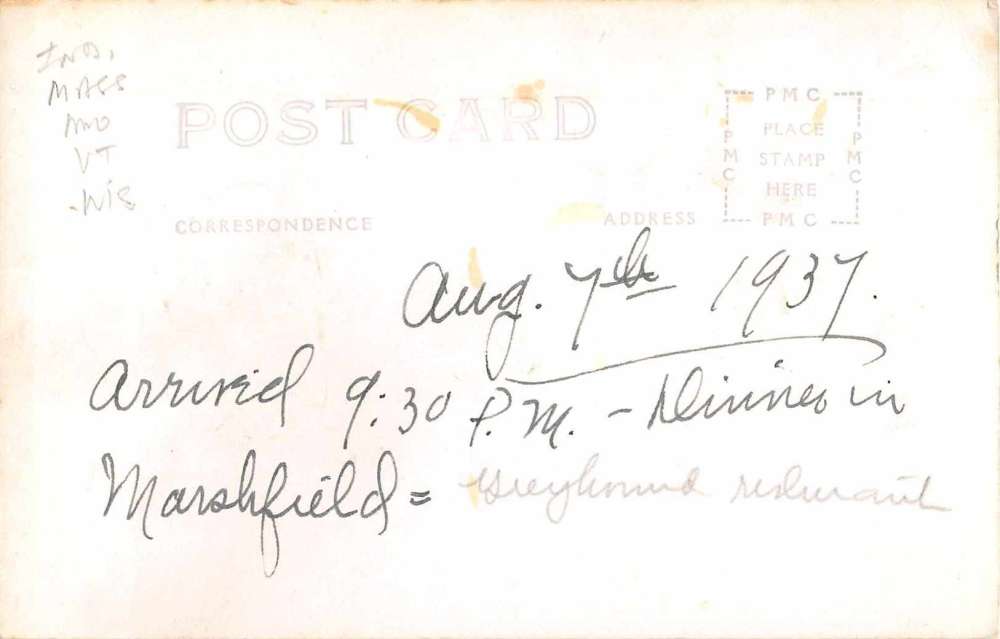 IND.
MASS
MO
VT
WIS
POST CARD
PMC
PLACE
STAMP
HERE
PMC
PMC
PMC
CORRESPONDENCE
ADDRESS
Aug. 7th 1937.
Arrived 9:30 P.M. - Dinner in
Marshfield = Greyhound